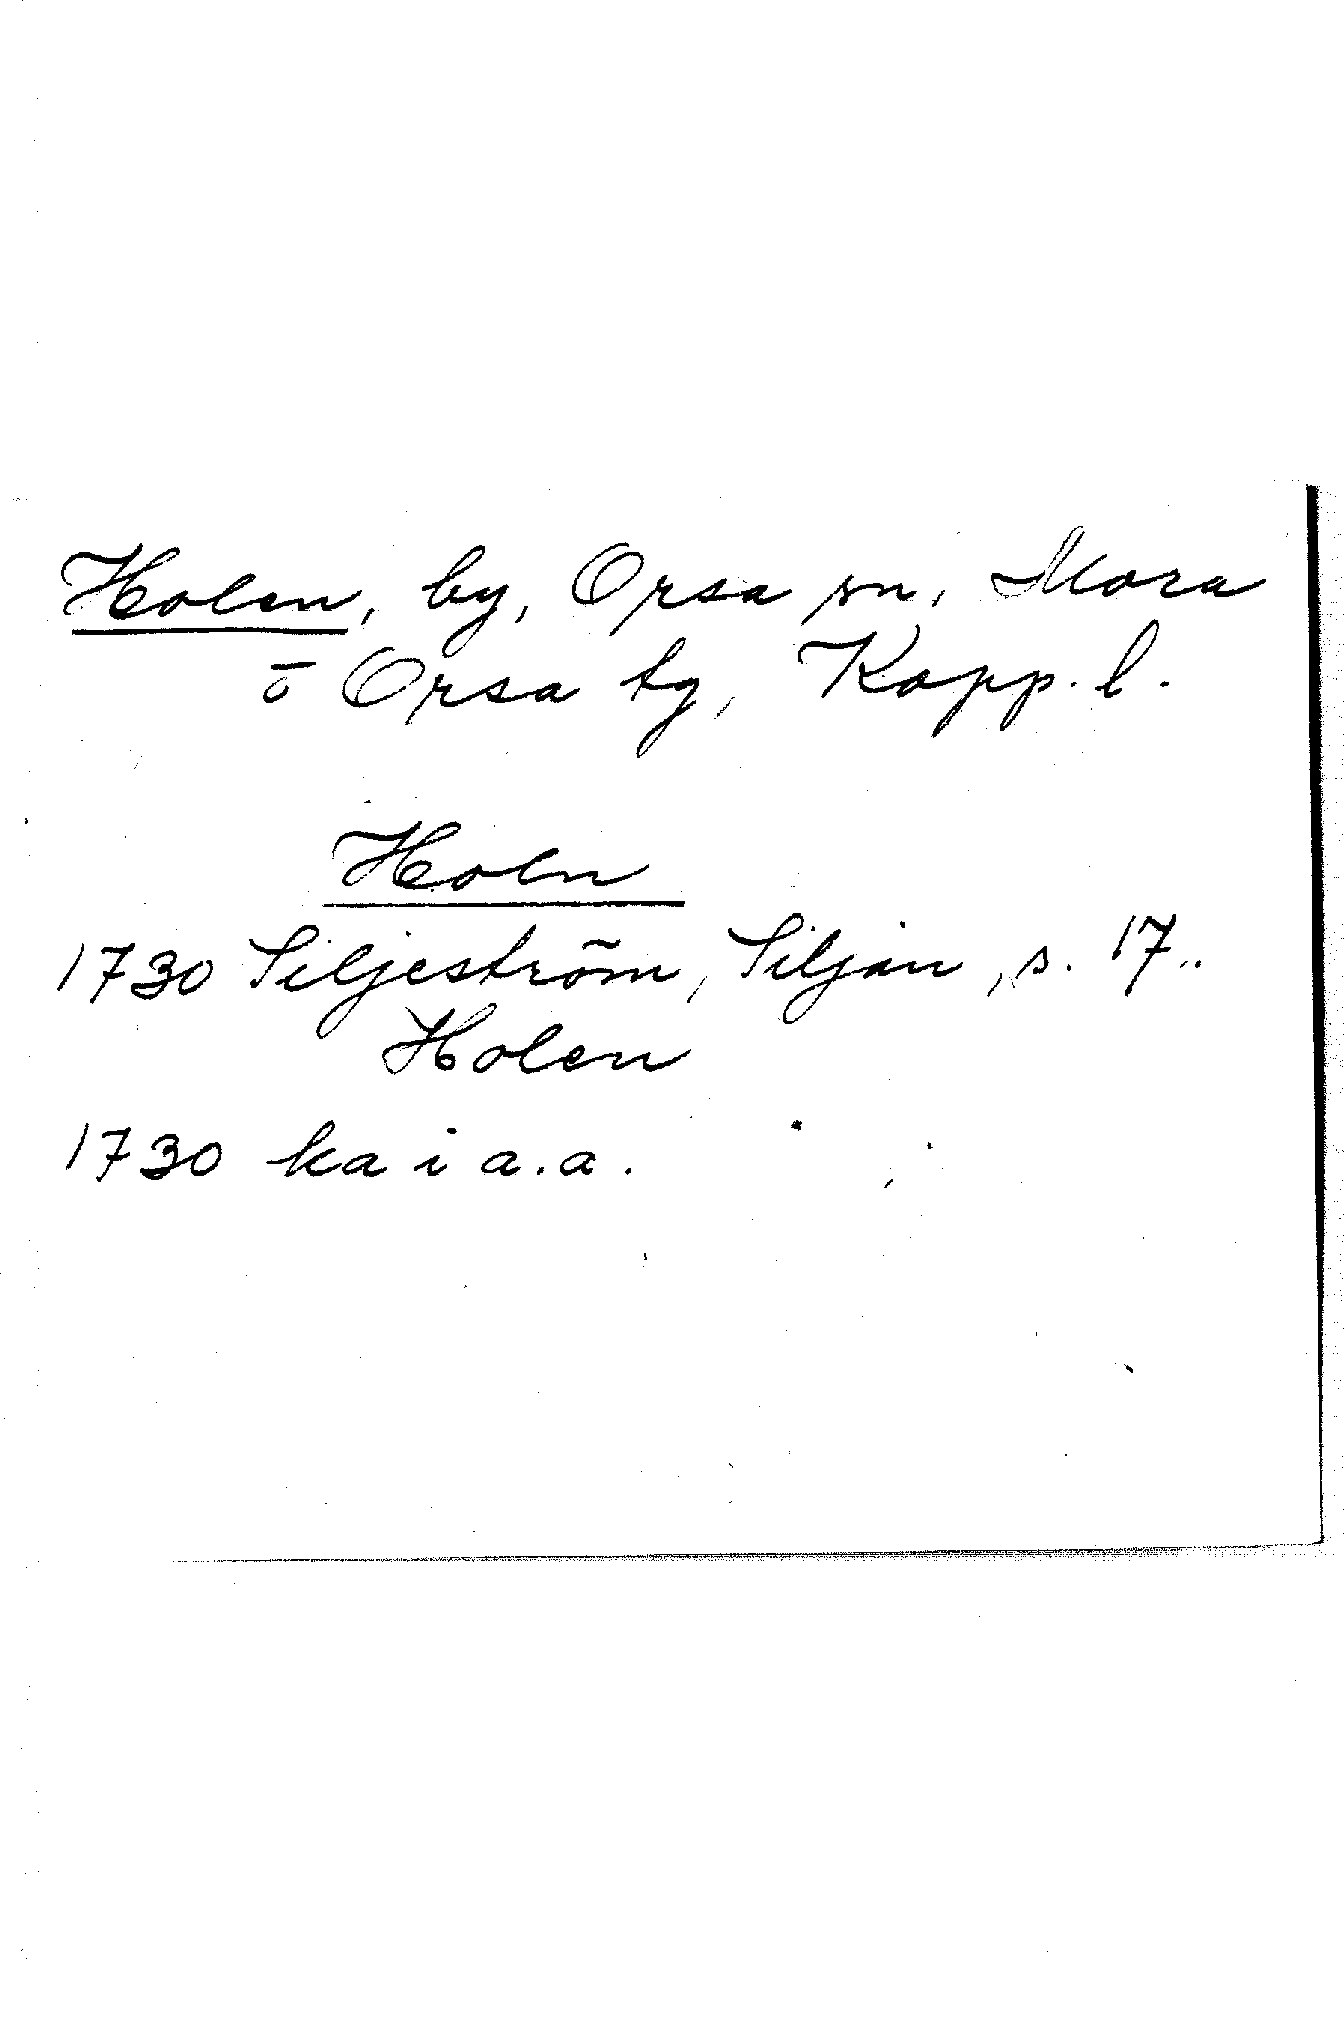 Holen, by, Orsa sn, Mora
o Orsa tg, Kopp. l.
Holn
1730 Siljeström, Siljan, s. 17..
Holen
1730 ka i a.a.